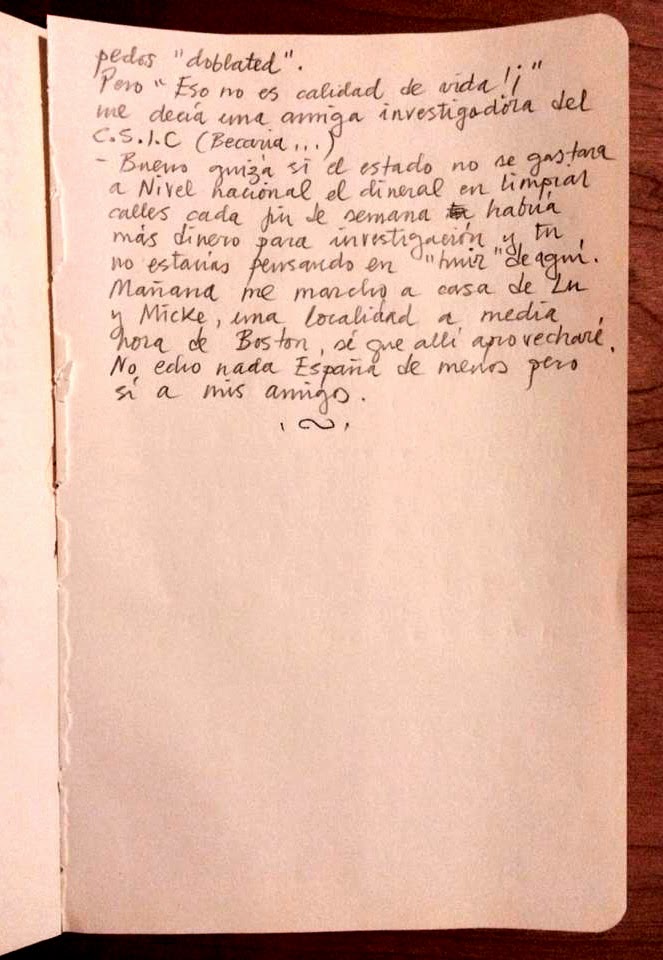 pedos "doblated".
Pero "Eso no es calidad de vida!¡"
me decía una amiga investigadora del
C.S.I.C (Becaria...)
- Bueno quizá si el estado no se gastara
a Nivel nacional el dineral en limpiar
calles cada fin de semana habría
más dinero para investigación y tu
no estarías pensando en "huir" de aquí.
Mañana me marcho a casa de Lu
y Micke, una localidad a media
hora de Boston, sé que allí aprovecharé.
No echo nada España de menos pero
sí a mis amigos.